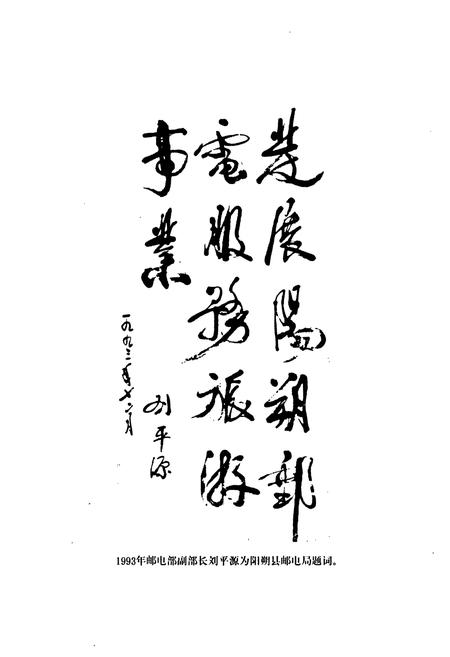 發展陽朔郵
電服務旅游
事業
刘平源
一九九三年十二月
1993年邮电部副部长刘平源为阳朔县邮电局题词。